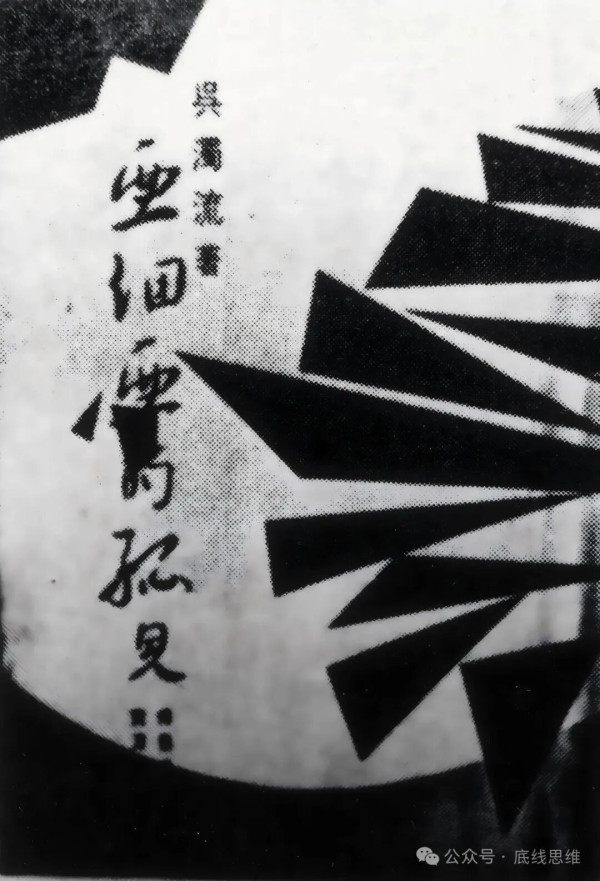 吳濁流著
亞細亞的孤兒
公众号 · 底线思维